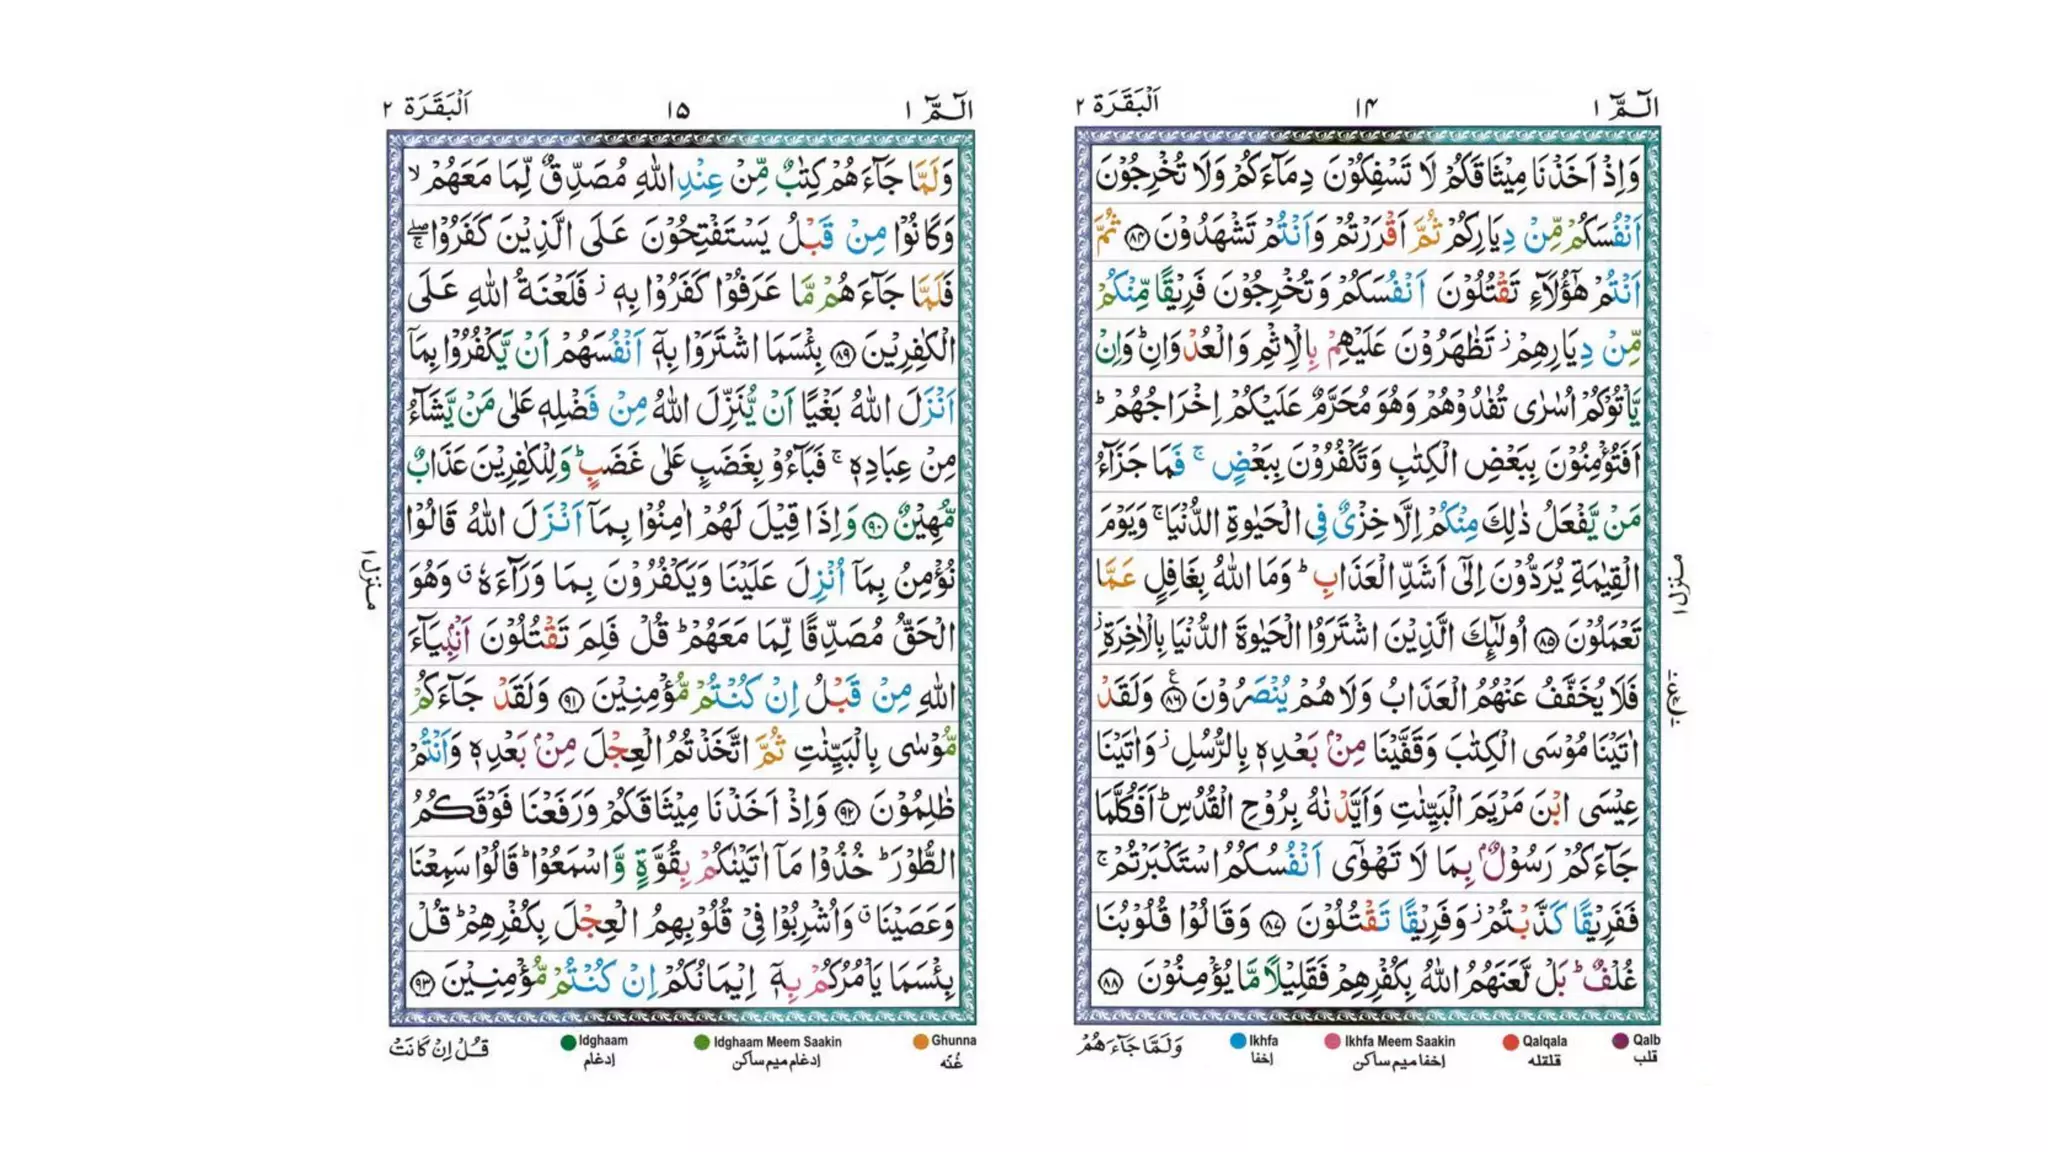 الٓمّٓ ١
١٤
اَلْبَقَرَة ٢
وَاِذْ اَخَذْنَا مِيْثَاقَكُمْ لَا تَسْفِكُوْنَ دِمَآءَكُمْ وَلَا تُخْرِجُوْنَ
اَنْفُسَكُمْ مِّنْ دِيَارِكُمْ ثُمَّ اَقْرَرْتُمْ وَاَنْتُمْ تَشْهَدُوْنَ ۸۴ ثُمَّ
اَنْتُمْ هٰٓؤُلَآءِ تَقْتُلُوْنَ اَنْفُسَكُمْ وَتُخْرِجُوْنَ فَرِيْقًا مِّنْكُمْ
مِّنْ دِيَارِهِمْ ز تَظٰهَرُوْنَ عَلَيْهِمْ بِالْاِثْمِ وَالْعُدْوَانِ ط وَاِنْ
يَّاْتُوْكُمْ اُسٰرٰى تُفٰدُوْهُمْ وَهُوَ مُحَرَّمٌ عَلَيْكُمْ اِخْرَاجُهُمْ ط
اَفَتُؤْمِنُوْنَ بِبَعْضِ الْكِتٰبِ وَتَكْفُرُوْنَ بِبَعْضٍ ج فَمَا جَزَآءُ
مَنْ يَّفْعَلُ ذٰلِكَ مِنْكُمْ اِلَّا خِزْىٌ فِى الْحَيٰوةِ الدُّنْيَا ج وَيَوْمَ
الْقِيٰمَةِ يُرَدُّوْنَ اِلٰٓى اَشَدِّ الْعَذَابِ ط وَمَا اللّٰهُ بِغَافِلٍ عَمَّا
تَعْمَلُوْنَ ۸۵ اُولٰٓئِكَ الَّذِيْنَ اشْتَرَوُا الْحَيٰوةَ الدُّنْيَا بِالْاٰخِرَةِ ز
فَلَا يُخَفَّفُ عَنْهُمُ الْعَذَابُ وَلَا هُمْ يُنْصَرُوْنَ ۸۶ ع وَلَقَدْ
اٰتَيْنَا مُوْسَى الْكِتٰبَ وَقَفَّيْنَا مِنْۢ بَعْدِهٖ بِالرُّسُلِ ز وَاٰتَيْنَا
عِيْسَى ابْنَ مَرْيَمَ الْبَيِّنٰتِ وَاَيَّدْنٰهُ بِرُوْحِ الْقُدُسِ ط اَفَكُلَّمَا
جَآءَكُمْ رَسُوْلٌۢ بِمَا لَا تَهْوٰٓى اَنْفُسُكُمُ اسْتَكْبَرْتُمْ ج
فَفَرِيْقًا كَذَّبْتُمْ ز وَفَرِيْقًا تَقْتُلُوْنَ ۸۷ وَقَالُوْا قُلُوْبُنَا
غُلْفٌ ط بَلْ لَّعَنَهُمُ اللّٰهُ بِكُفْرِهِمْ فَقَلِيْلًا مَّا يُؤْمِنُوْنَ ۸۸
منزل ١
Qalb Qalqala Ikhfa Meem Saakin Ikhfa
قلب قلقله إخفا ميم ساكن إخفا
وَلَمَّا جَآءَهُمْ
الٓمّٓ ١
١٥
اَلْبَقَرَة ٢
وَلَمَّا جَآءَهُمْ كِتٰبٌ مِّنْ عِنْدِ اللّٰهِ مُصَدِّقٌ لِّمَا مَعَهُمْ لا
وَكَانُوْا مِنْ قَبْلُ يَسْتَفْتِحُوْنَ عَلَى الَّذِيْنَ كَفَرُوْا ج صلے
فَلَمَّا جَآءَهُمْ مَّا عَرَفُوْا كَفَرُوْا بِهٖ ز فَلَعْنَةُ اللّٰهِ عَلَى
الْكٰفِرِيْنَ ۸۹ بِئْسَمَا اشْتَرَوْا بِهٖٓ اَنْفُسَهُمْ اَنْ يَّكْفُرُوْا بِمَآ
اَنْزَلَ اللّٰهُ بَغْيًا اَنْ يُّنَزِّلَ اللّٰهُ مِنْ فَضْلِهٖ عَلٰى مَنْ يَّشَآءُ
مِنْ عِبَادِهٖ ج فَبَآءُوْ بِغَضَبٍ عَلٰى غَضَبٍ ط وَلِلْكٰفِرِيْنَ عَذَابٌ
مُّهِيْنٌ ۹۰ وَاِذَا قِيْلَ لَهُمْ اٰمِنُوْا بِمَآ اَنْزَلَ اللّٰهُ قَالُوْا
نُؤْمِنُ بِمَآ اُنْزِلَ عَلَيْنَا وَيَكْفُرُوْنَ بِمَا وَرَآءَهٗ ق وَهُوَ
الْحَقُّ مُصَدِّقًا لِّمَا مَعَهُمْ ط قُلْ فَلِمَ تَقْتُلُوْنَ اَنْۢبِيَآءَ
اللّٰهِ مِنْ قَبْلُ اِنْ كُنْتُمْ مُّؤْمِنِيْنَ ۹۱ وَلَقَدْ جَآءَكُمْ
مُّوْسٰى بِالْبَيِّنٰتِ ثُمَّ اتَّخَذْتُمُ الْعِجْلَ مِنْۢ بَعْدِهٖ وَاَنْتُمْ
ظٰلِمُوْنَ ۹۲ وَاِذْ اَخَذْنَا مِيْثَاقَكُمْ وَرَفَعْنَا فَوْقَكُمُ
الطُّوْرَ ط خُذُوْا مَآ اٰتَيْنٰكُمْ بِقُوَّةٍ وَّاسْمَعُوْا ط قَالُوْا سَمِعْنَا
وَعَصَيْنَا ق وَاُشْرِبُوْا فِىْ قُلُوْبِهِمُ الْعِجْلَ بِكُفْرِهِمْ ط قُلْ
بِئْسَمَا يَاْمُرُكُمْ بِهٖٓ اِيْمَانُكُمْ اِنْ كُنْتُمْ مُّؤْمِنِيْنَ ۹۳
منزل ١
Ghunna Idghaam Meem Saakin Idghaam
غُنّه إدغام ميم ساكن إدغام
قُلْ اِنْ كَانَتْ